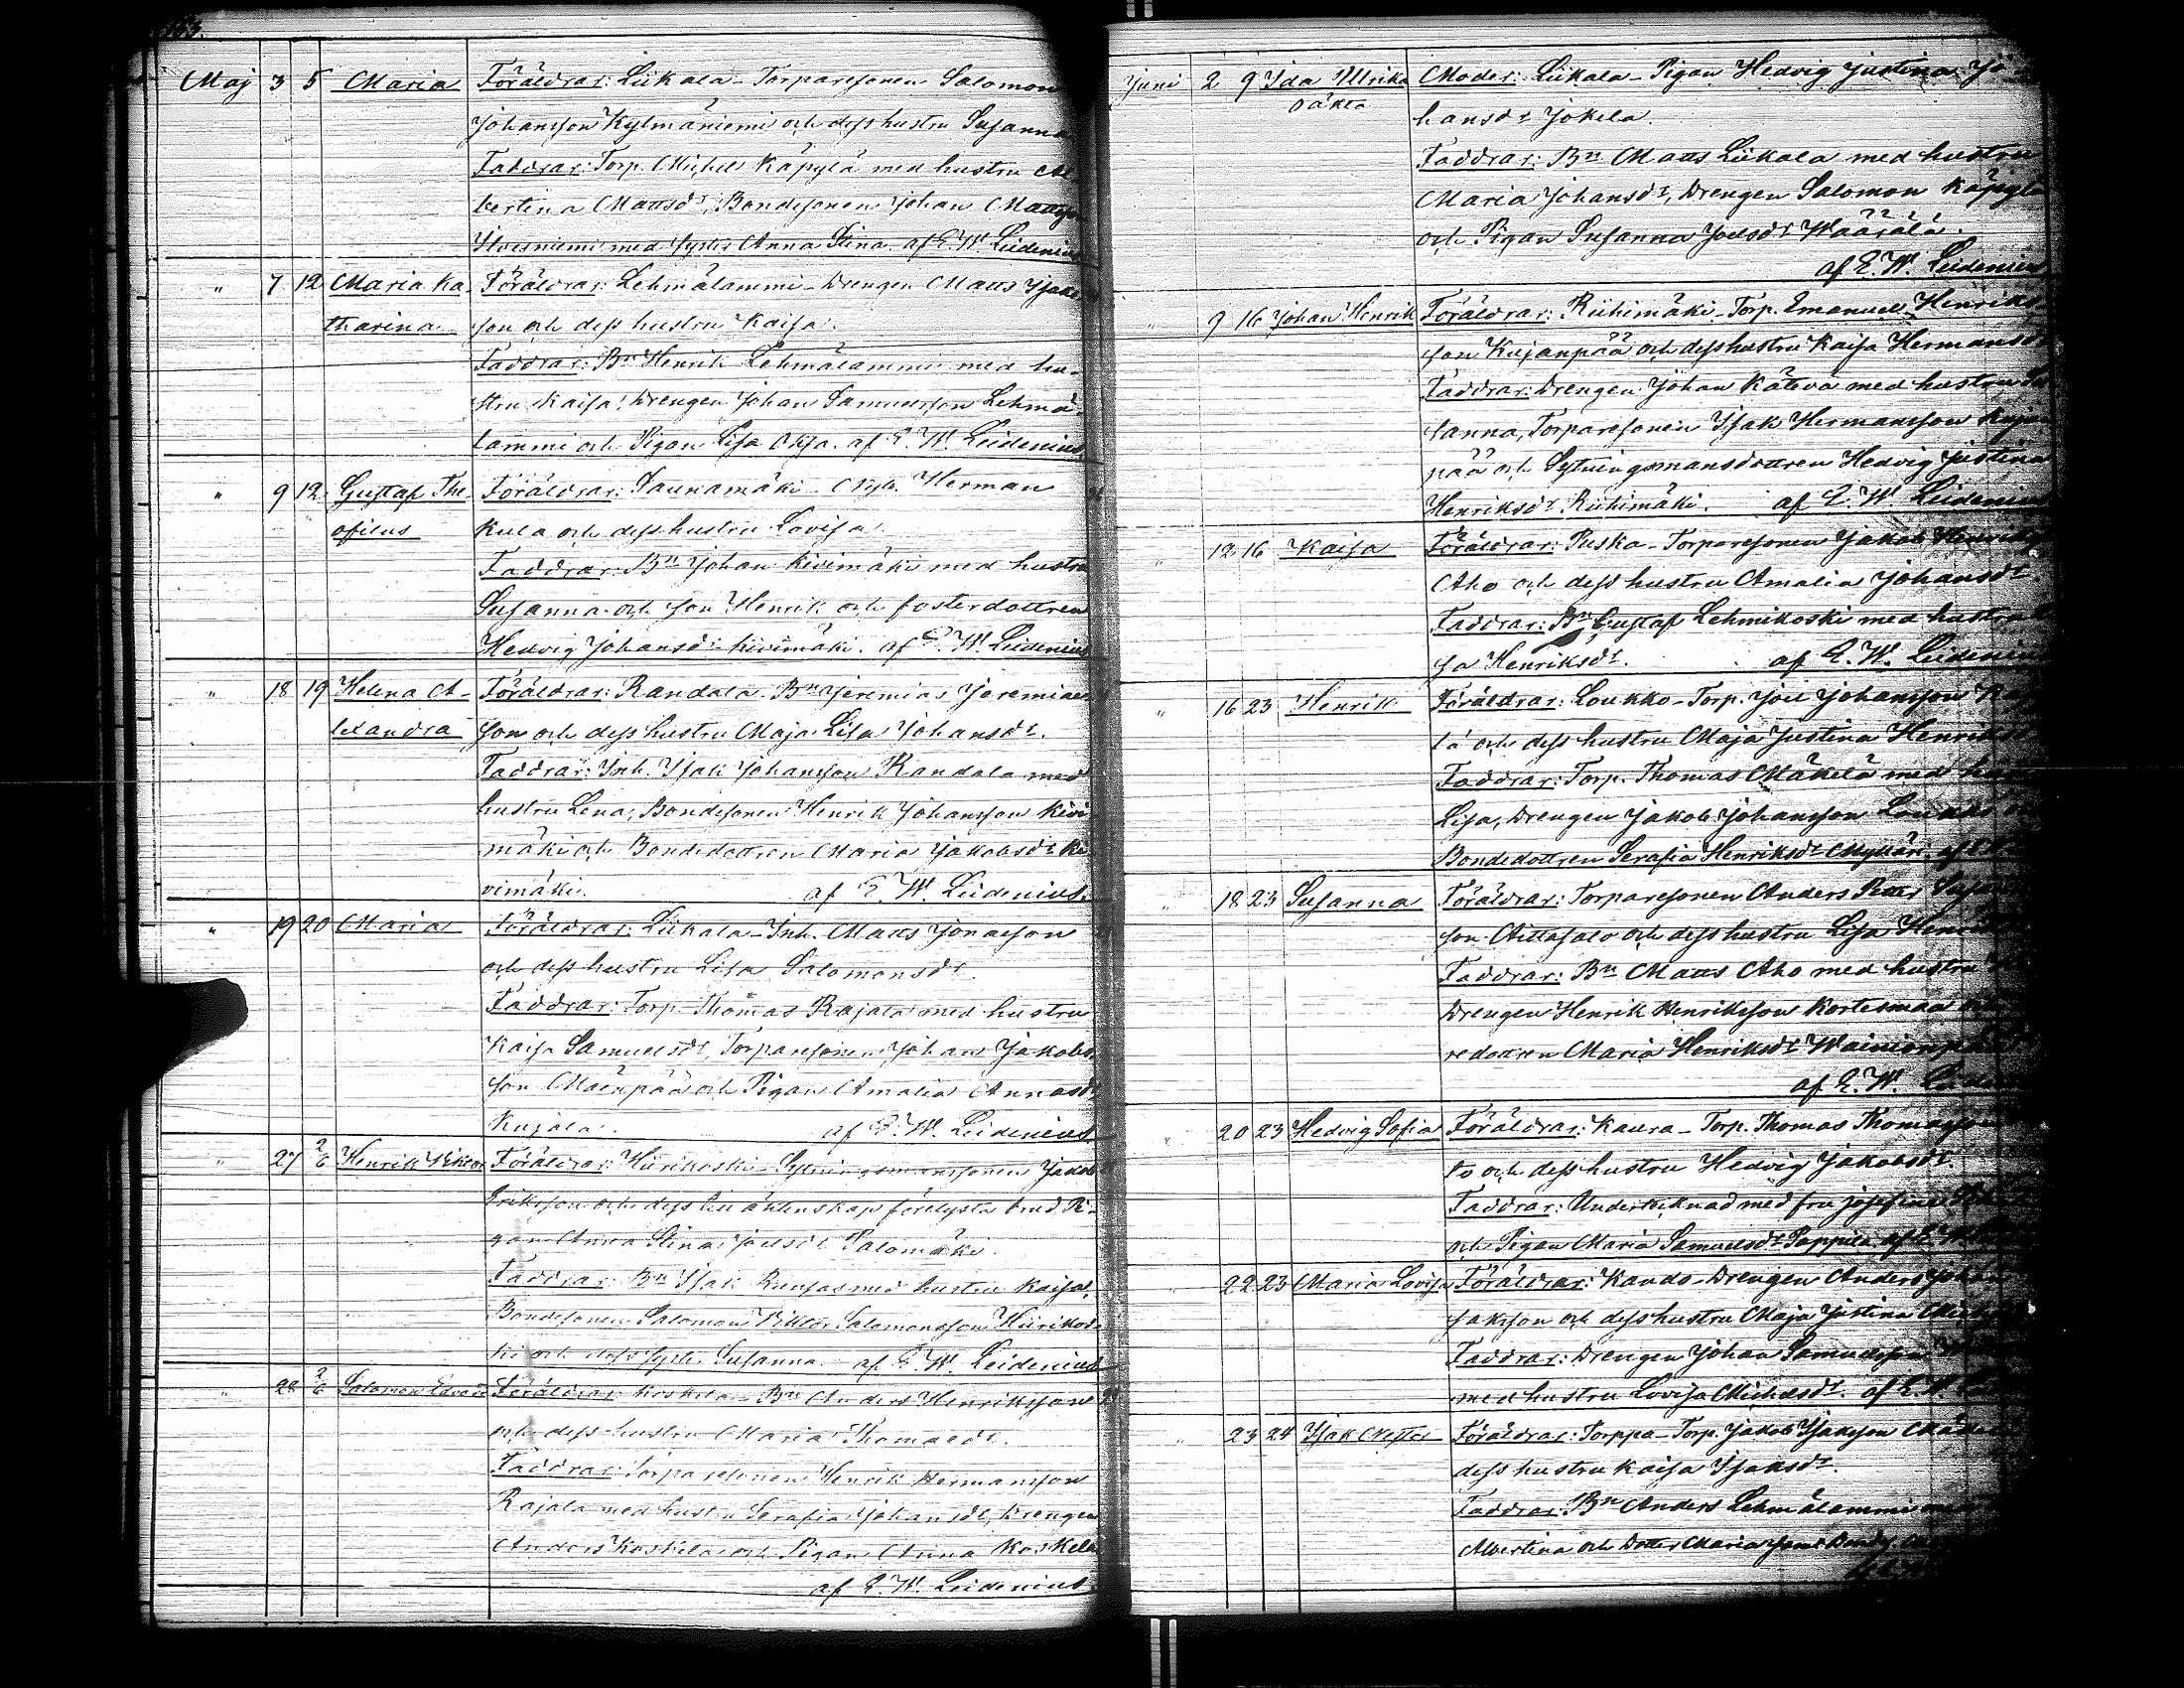 Maj 3 5 Maria Föräldrar: Liikala-Torparesonen Salomon
Johansson Kylmäniemi och dess hustru Susanna
Faddrar: Torp. Michel Käpylä med hustru Al
bertina Mattsdr, Bondesonen Johan Matts
med syster Anna Stina. af E. W. Leidenius
" 7 12 Maria Ka- Föräldrar: Lehmälammi-Drengen Matts Isaks
tharina son och dess hustru Kaisa.
Faddrar: Bn Henrik Lehmälammi med hu-
stru Kaisa, Drengen Johan Samuelsson Lehmä-
lammi och Pigan Lisa Oija. af E. W. Leidenius.
" 9 12 Gustaf The- Föräldrar: Saunamäki- Herman
ofilus Kula och dess hustru Lovisa.
Faddrar: Bn Johan Kivimäki med hustru
Susanna och son Henrik och fosterdottren
Hedvig Johansdr Kivimäki. af E. W. Leidenius
" 18 19 Helena A- Föräldrar: Randala-Bn Jeremias Jeremias
lexandra son och dess hustru Maja Lisa Johansdr.
Faddrar: Inh. Isak Johansson Randala med
hustru Lena, Bondesonen Henrik Johansson Kivi
mäki och Bondedottren Maria Jakobsdr Ki
vimäki. af E. W. Leidenius.
" 19 20 Maria Föräldrar: Liikala-Inh. Matts Jonasson
och dess hustru Lisa Salomonsdr.
Faddrar: Torp. Thomas Rajala med hustru
Kaisa Samuelsdr, Torparesonen Johan Jakobs
son Mäenpää och Pigan Amalia Annasdr
Kujala. af E. W. Leidenius
" 27 2/6 Henrik Viktor Föräldrar: Hiirikoski-Sytningsmanssonen Jakob
Eriksson och dess till äktenskap förelysta brud Pi-
gan Anna Stina Joelsdr Salomäki.
Faddrar: Bn Isak med hustru Kaisa,
Bondesonen Salomon Viktor Salomonsson Hiirikos
ki och dess syster Susanna. af E. W. Leidenius
" 28 2/6 Salomon Edvard Föräldrar: Koskela-Bn Anders Henriksson
och dess hustru Maria Thomasdr.
Faddrar: Torparesonen Henrik Hermansson
Rajala med hustru Serafia Johansdr, Drengen
Anders Koskela och Pigan Anna Koskela
af E. W. Leidenius.
Juni 2 9 Ida Ulrika Moder: Liikala-Pigan Hedvig Justina Jo-
oäkta hansdr Jokela.
Faddrar: Bn Matts Liikala med hustru
Maria Johansdr, Drengen Salomon Käpylä
och Pigan Susanna Joelsdr Wäärälä.
af E. W. Leidenius
" 9 16 Johan Henrik Föräldrar: Riihimäki-Torp. Emanuel Henriks
son Kujanpää och dess hustru Kaisa Hermansdr
Faddrar: Drengen Johan Kätevä med hustru Su
sanna, Torparesonen Isak Hermansson Kujan
pää och Sytningsmansdottren Hedvig Justina
Henriksdr Riihimäki. af E. W. Leidenius
" 12 16 Kaisa Föräldrar: Puska-Torparesonen Jakob Henriks
Aho och dess hustru Amalia Johansdr.
Faddrar: Bn Gustaf Lehmikoski med hustru
sa Henriksdr. af E. W. Leidenius
" 16 23 Henrik Föräldrar: Loukko-Torp. Joel Johansson
lä och dess hustru Maja Justina Henriks
Faddrar: Torp. Thomas Mäkelä med hu
Lisa, Drengen Jakob Johansson Loukko
Bondedottren Serafia Henriksdr Mylläri. af E.
" 18 23 Susanna Föräldrar: Torparesonen Anders
son Aittasalo och dess hustru Lisa Hen
Faddrar: Bn Matts Aho med hustru
Drengen Henrik Henriksson Kortesmaa
redottren Maria Henriksdr
af E. W.
" 20 23 Hedvig Sofia Föräldrar: Kaura-Torp. Thomas Thomasson
to och dess hustru Hedvig Jakobsdr.
Faddrar: Undertecknad med fru Josefina
och Pigan Maria Samuelsdr Pappila af E.
" 22 23 Maria Lovisa Föräldrar: Kando-Drengen Anders Johan
saksson och dess hustru Maja Justina Mich
Faddrar: Drengen Johan Samuelsson
med hustru Lovisa Michelsdr. af E. W.
" 23 24 Isak Nestor Föräldrar: Torppa-Torp. Jakob Isaksson
dess hustru Kaisa Isaksdr.
Faddrar: Bn Anders Lehmälammi
Albertina och Dotter Maria